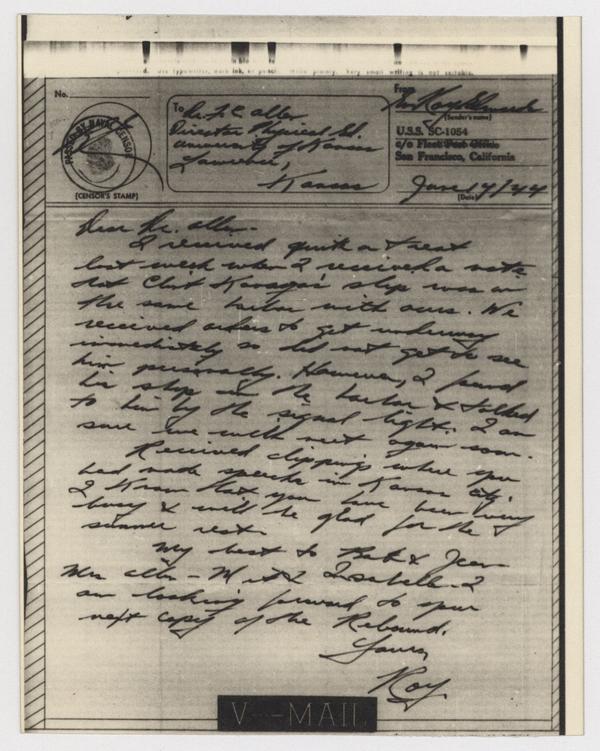 d. Use typewriter, dark ink, or pencil. Write plainly. Very small writing is not suitable.
No.
PASSED BY NAVAL CENSOR
(CENSOR'S STAMP)
To Dr. F. C. Allen
Director Physical Ed.
University of Kansas
Lawrence,
Kansas
From
Roy Edwards
(Sender's name)
U.S.S. SC-1054
c/o Fleet Post Office
San Francisco, California
June 17/44
(Date)
Dear Dr. Allen-
I received quite a treat
last week when I received a note
that Clint Kanaga's ship was in
the same harbor with ours. We
received orders to get underway
immediately so did not get to see
him personally. However, I found
his ship in the harbor & talked
to him by the signal light. I am
sure we will meet again soon.
Received clippings where you
had made speeches in Kansas City.
I know that you have been very
busy & will be glad for the
summer rest.
My best to Bob & Jean
Mrs Allen - Mit & Isabelle. I
am looking forward to your
next copy of the Rebound.
Yours,
Roy.
V···—MAIL